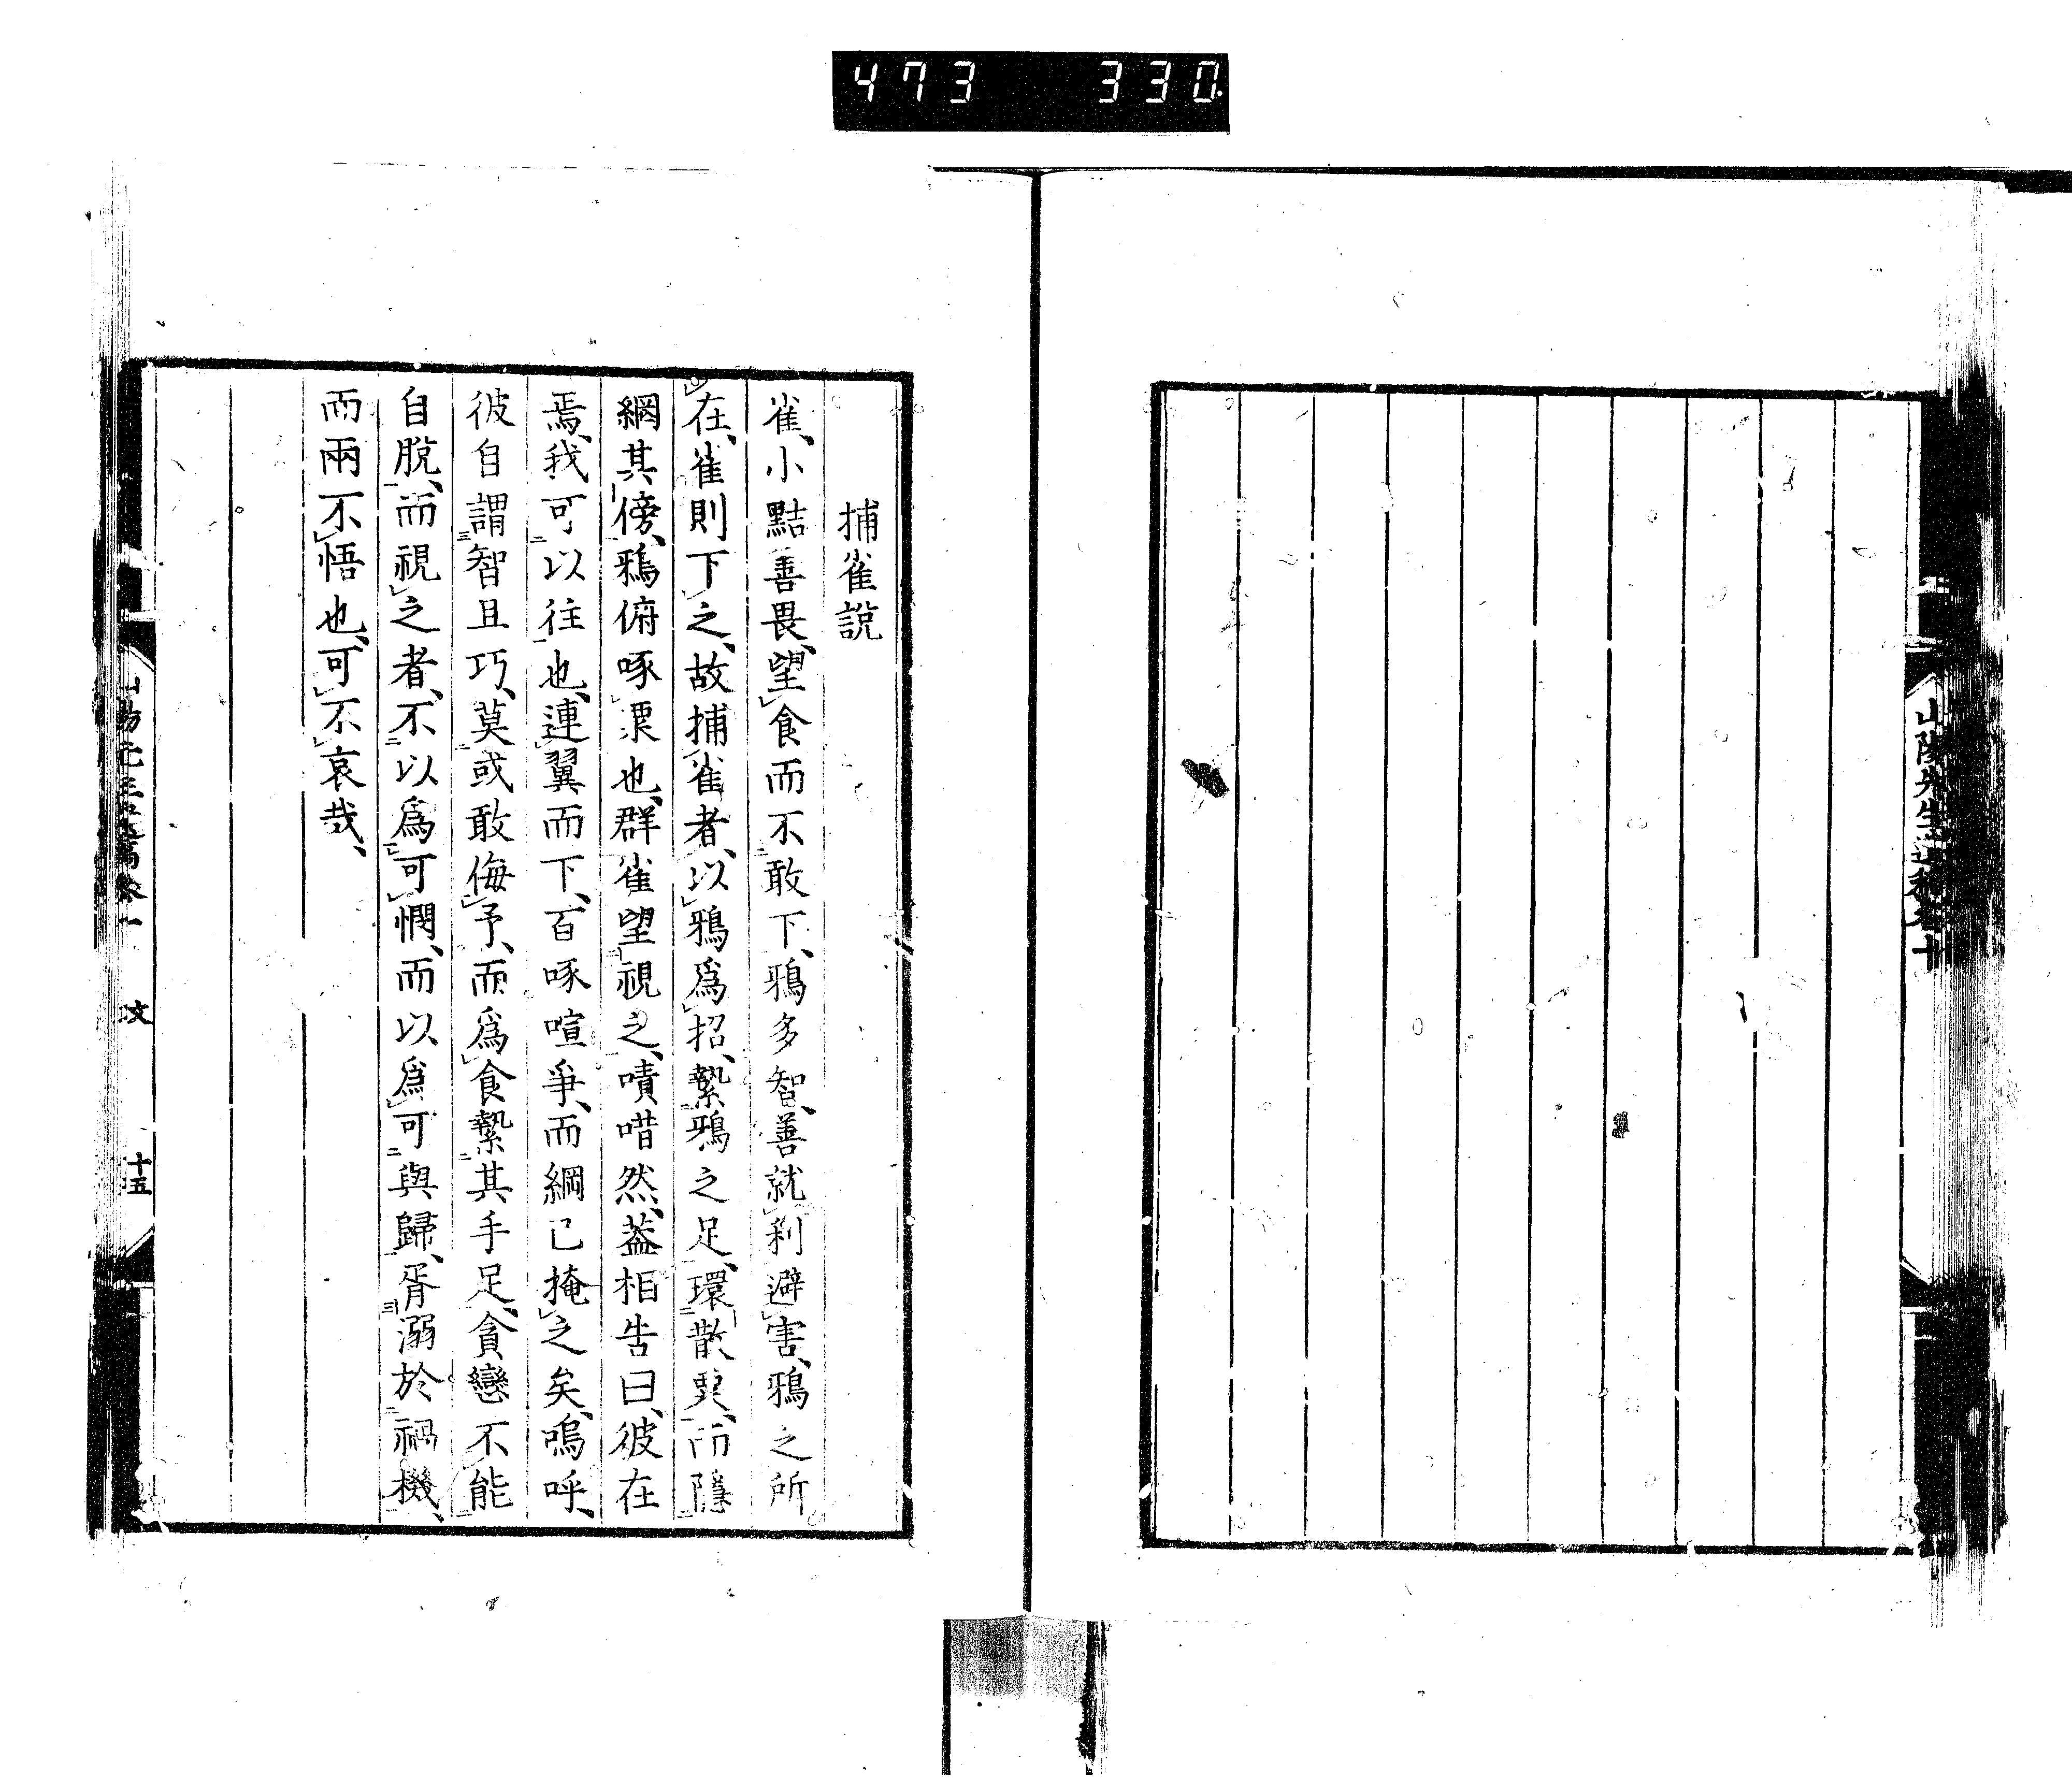 473 330
山陽先生遺稿卷十
捕雀說
雀、小黠善畏、望食而不敢下、鴉多智、善就利避害、鴉之所
在、雀則下之、故捕雀者、以鴉爲招、縶鴉之足、環散粟、而隱
網其傍、鴉俯啄粟也、群雀望視之、嘖唶然、蓋相告曰、彼在
焉、我可以往也、連翼而下、百啄喧爭、而網已掩之矣、嗚呼、
彼自謂智且巧、莫或敢侮予、而爲食縶其手足、貪戀不能
自脫、而視之者、不以爲可憫、而以爲可與歸、胥溺於禍機、
而兩不悟也、可不哀哉、
文 十五